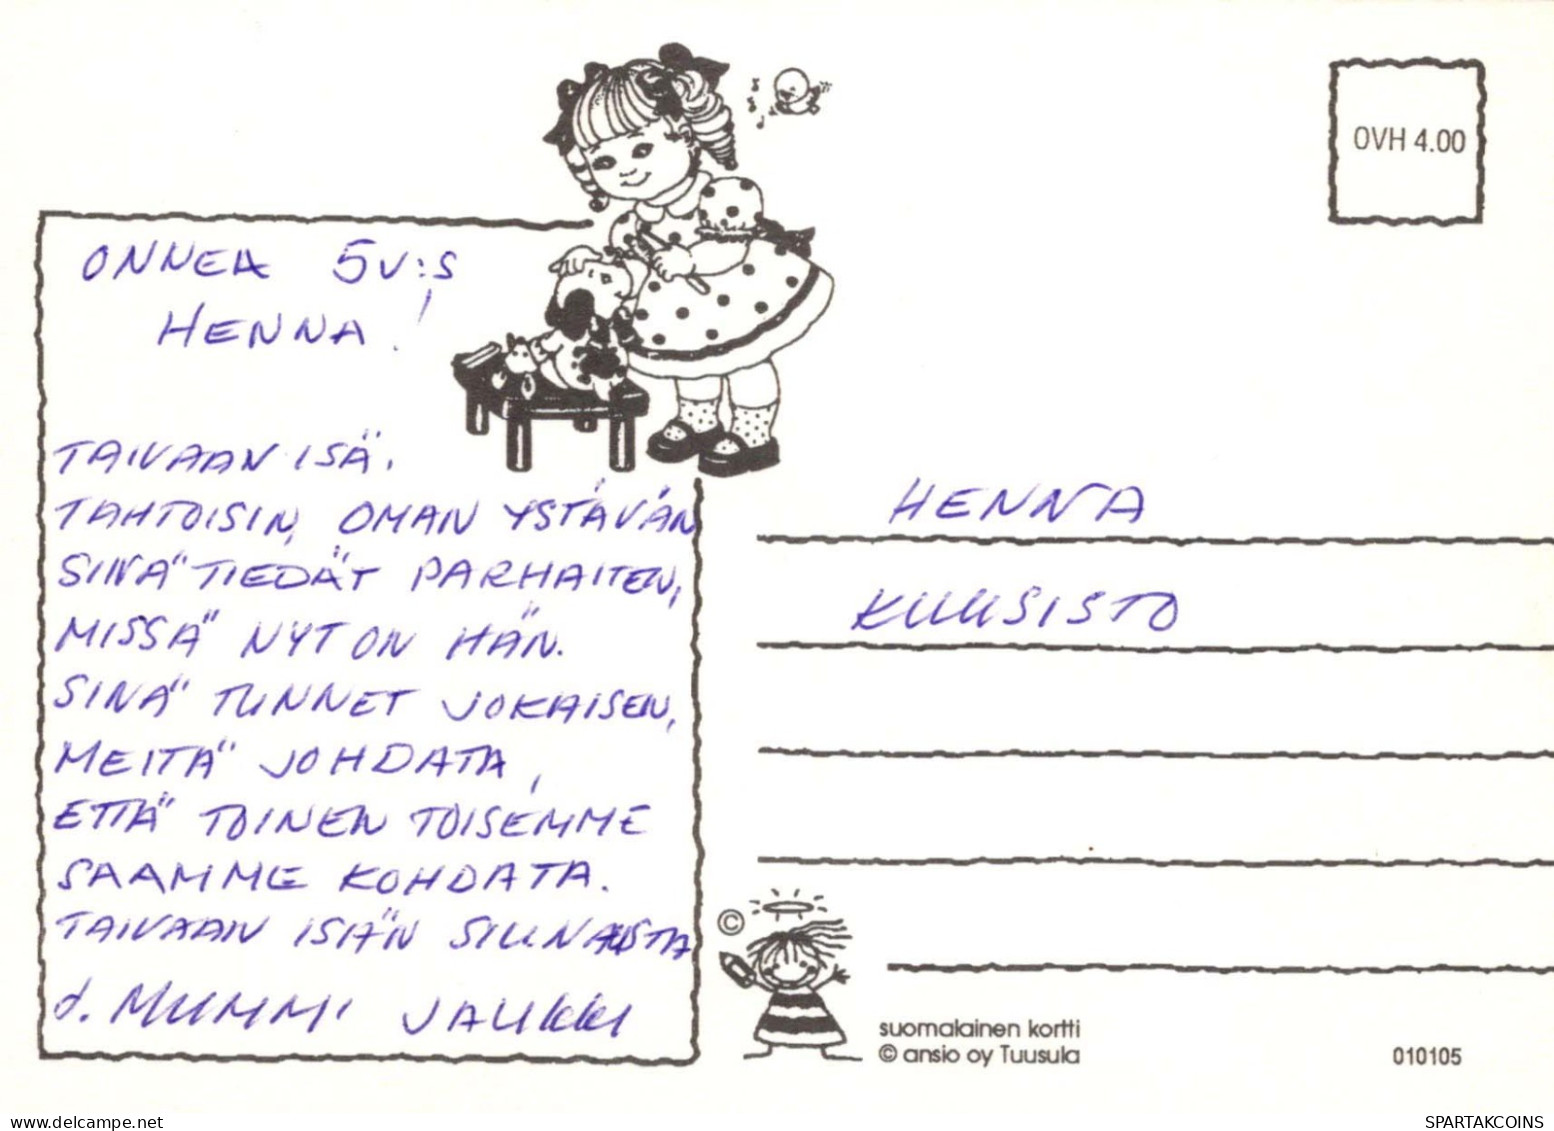 OVH 4.00
ONNEA 5V:S
HENNA!
TAIVAAN ISÄ,
TAHTOISIN, OMAN YSTÄVÄN
SINÄ TIEDÄT PARHAITEN,
MISSÄ NYT ON HÄN.
SINÄ TUNNET JOKAISEN,
MEITÄ JOHDATA,
ETTÄ TOINEN TOISEMME
SAAMME KOHDATA.
TAIVAAN ISÄN SIUNAUSTA
HENNA
KUUSISTO
©
suomalainen kortti
© ansio oy Tuusula
010105
hippostcard.com
SPARTAKCOINS